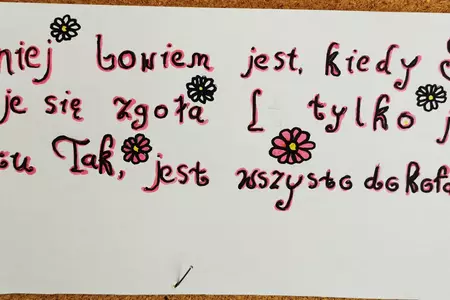 niej bowiem jest, kiedy S
je się zgoła I tylko j
u Tak, jest wszysto dokoła